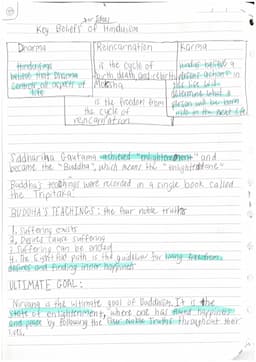 Key Beliefs of Hinduism
Dharma
Hinduism
belief that Dharma
controls all aspects of
life
Reincarnation
is the cycle of
birth, death, and rebirth
Moksha
is the freedom from
the cycle of
reincarnation
Karma
belief a
person's actions in
this life will
determine what a
person will be born
into in the next life
Siddhartha Gautama achieved "enlightenment" and
became the "Buddha", which means the "enlightened one"
Buddha's teachings were recorded in a single book called
the Tripitaka.
BUDDHA'S TEACHINGS: the four noble truths
1. Suffering exists
2. Desire cause suffering
3. Suffering can be ended
4. the Eightfold path is the guideline for
desires and finding inner happiness
ULTIMATE GOAL:
Nirvana is the ultimate goal of Buddhism. It is the
state of enlightenment, where one has found happiness
and peace by following the Four Noble Truths throughout their
lives.